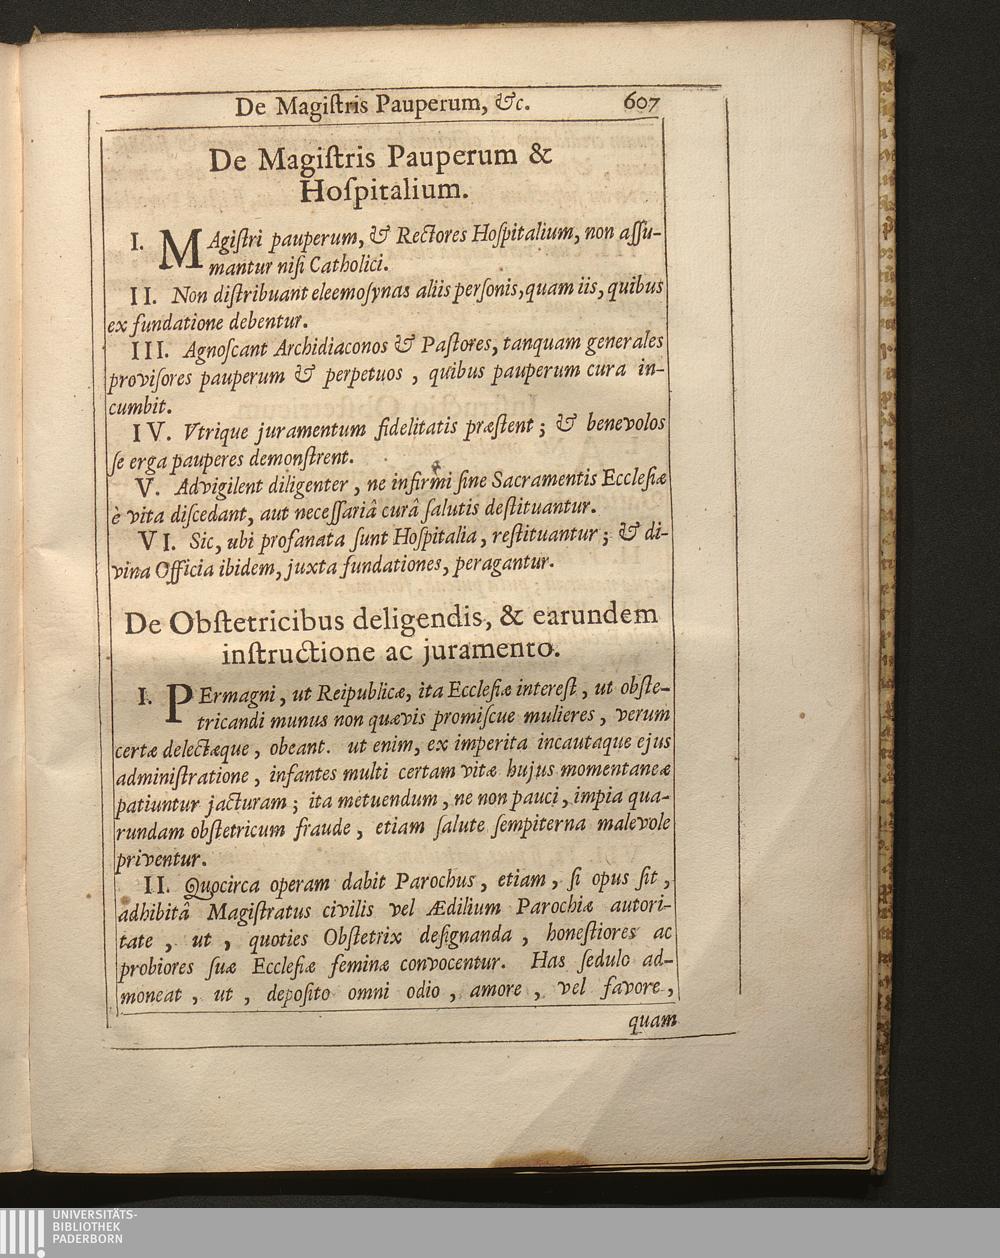 De Magiſtris Pauperum, &c. 607
De Magiſtris Pauperum &
Hoſpitalium.
I. MAgiſtri pauperum, & Rectores Hoſpitalium, non aſſu-
mantur niſi Catholici.
II. Non diſtribuant eleemoſynas aliis perſonis, quam iis, quibus
ex fundatione debentur.
III. Agnoſcant Archidiaconos & Paſtores, tanquam generales
proviſores pauperum & perpetuos, quibus pauperum cura in-
cumbit.
IV. Vtrique juramentum fidelitatis præſtent; & benevolos
ſe erga pauperes demonſtrent.
V. Advigilent diligenter, ne infirmi ſine Sacramentis Eccleſiæ
è vita diſcedant, aut neceſſariâ curâ ſalutis deſtituantur.
VI. Sic, ubi profanata ſunt Hoſpitalia, reſtituantur; & di-
vina Officia ibidem, juxta fundationes, peragantur.
De Obſtetricibus deligendis, & earundem
inſtructione ac juramento.
I. PErmagni, ut Reipublicæ, ita Eccleſiæ intereſt, ut obſte-
tricandi munus non quævis promiſcue mulieres, verum
certæ delectæque, obeant. ut enim, ex imperita incautaque ejus
adminiſtratione, infantes multi certam vitæ hujus momentaneæ
patiuntur jacturam; ita metuendum, ne non pauci, impia qua-
rundam obſtetricum fraude, etiam ſalute ſempiterna malevole
priventur.
II. Quocirca operam dabit Parochus, etiam, ſi opus ſit,
adhibitâ Magiſtratus civilis vel Ædilium Parochiæ autori-
tate, ut, quoties Obſtetrix deſignanda, honeſtiores ac
probiores ſuæ Eccleſiæ feminæ convocentur. Has ſedulo ad-
moneat, ut, depoſito omni odio, amore, vel favore,
quam
UNIVERSITÄTS-
BIBLIOTHEK
PADERBORN